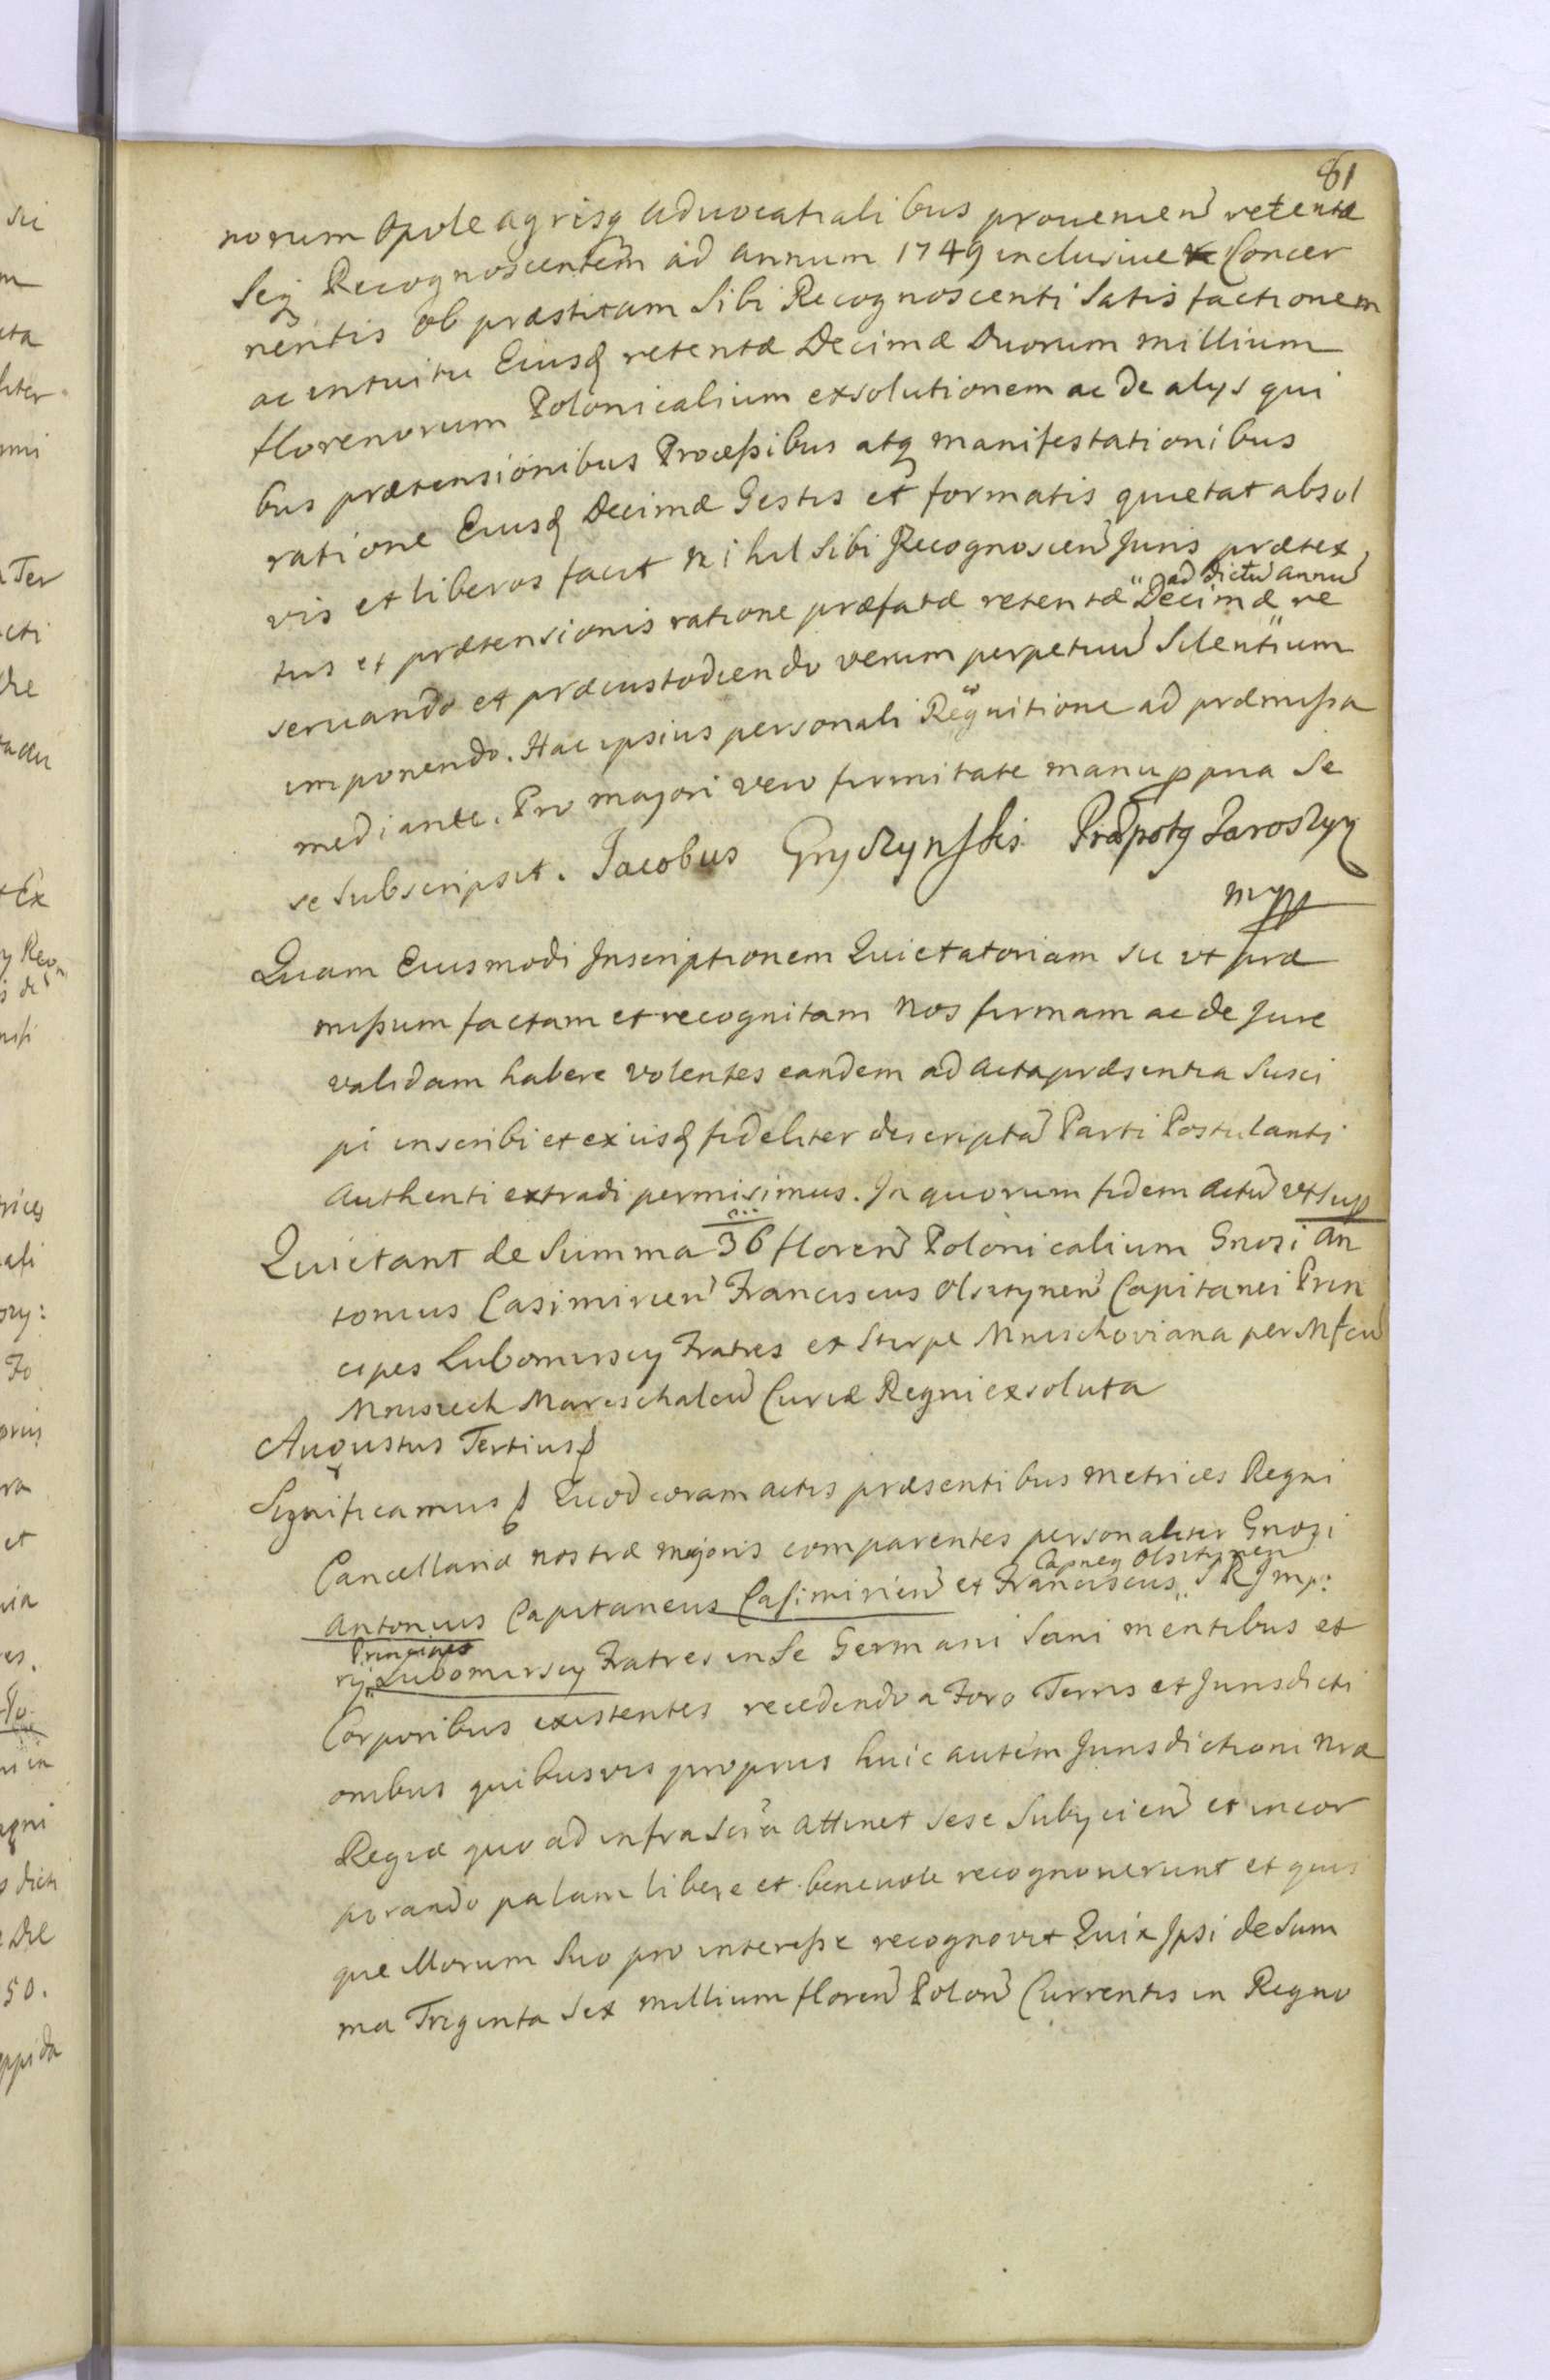 61
norum Opole agrisq aduocatialibus prouenien retentæ
Seq Recognoscentem ad annum 1749 inclusiue Concer
nentis ob præstitam Sibi Recognoscenti Satisfactionem
ac intuitu Eiusd retentæ Decimæ Duorum millium
florenorum Polonicalium exsolutionem ac de alijs qui
bus prætensionibus Processibus atq manifestationibus
ratione Eiusd Decimæ Gestis et formatis quietat absol
vit et liberos facit nihil Sibi Recognoscen Juris prætex
ad dictu annu
tus et prætensionis ratione præfatæ retentæ Decimæ re
seruando et præcustodiendo verum perpetuu Silentium
imponendo. Hac ipsius personali Recognitione ad præmissa
mediante. Pro majori vero firmitate manu ppria Se
se subscripsit. Jacobus Gryczynski Præpotq Jaroszyn
mpp
Quam Eiusmodi Inscriptionem Quietatoriam sic ut præ
missum factam et recognitam Nos firmam ac de Jure
validam habere volentes eandem ad Acta præsentia Susci
pi inscribi et ex iisd fideliter descripta Parti Postulanti
Authenti extradi permisimus. In quorum fidem Actu ut sup
Quietant de Summa 36 floren Polonicalium Gnosi An
tonius Casimirien Franciscus Olsztynen Capitanei Prin
cipes Lubomirscy Fratres et Stirpe Mniszchoviana per Mfcu
Mniszech Mareschalcu Curiæ Regni exsoluta
Augustus Tertius
Significamus Quod coram actis præsentibus Metrices Regni
Cancellariæ nostræ majoris comparentes personaliter Gnosi
Capney Olsztynen
Antonius Capitaneus Casimirien et Franciscus S R Imp:
Principes
rij Lubomirscy Fratres in Se Germani Sani mentibus et
Corporibus existentes recedendo a Foro Terris et Jurisdicti
onibus quibusvis proprijs huic autem Jurisdictioni Nræ
Regiæ quo ad infra scra attinet sese Subijcien et incor
porando palam libere et benevole recognouerunt et quis
que illorum Suo pro interesse recognovit Quia Ipsi de Sum
ma Triginta Sex millium floren Polon Currentis in Regno